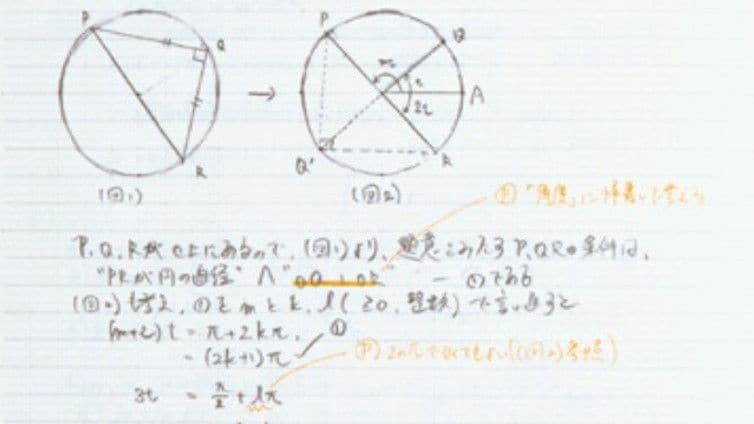 P
Q
R
(図1)
P
Q
mt
t
2t
A
Q'
R
(図2)
㊟「角度」に帰着して考える
P,Q,Rが円上にあるので、(図1)より、題意をみたすP,Q,Rの条件は、
"PRが円の直径" ∧ "OQ ⊥ OR" ―①である
(図2)も考え、①をmとk, l(≧0, 整数)で言い直すと
(m+2)t = π+2kπ,
= (2k+1)π
①
3t = π/2 + lπ
㊟2nπで(図2)参照)